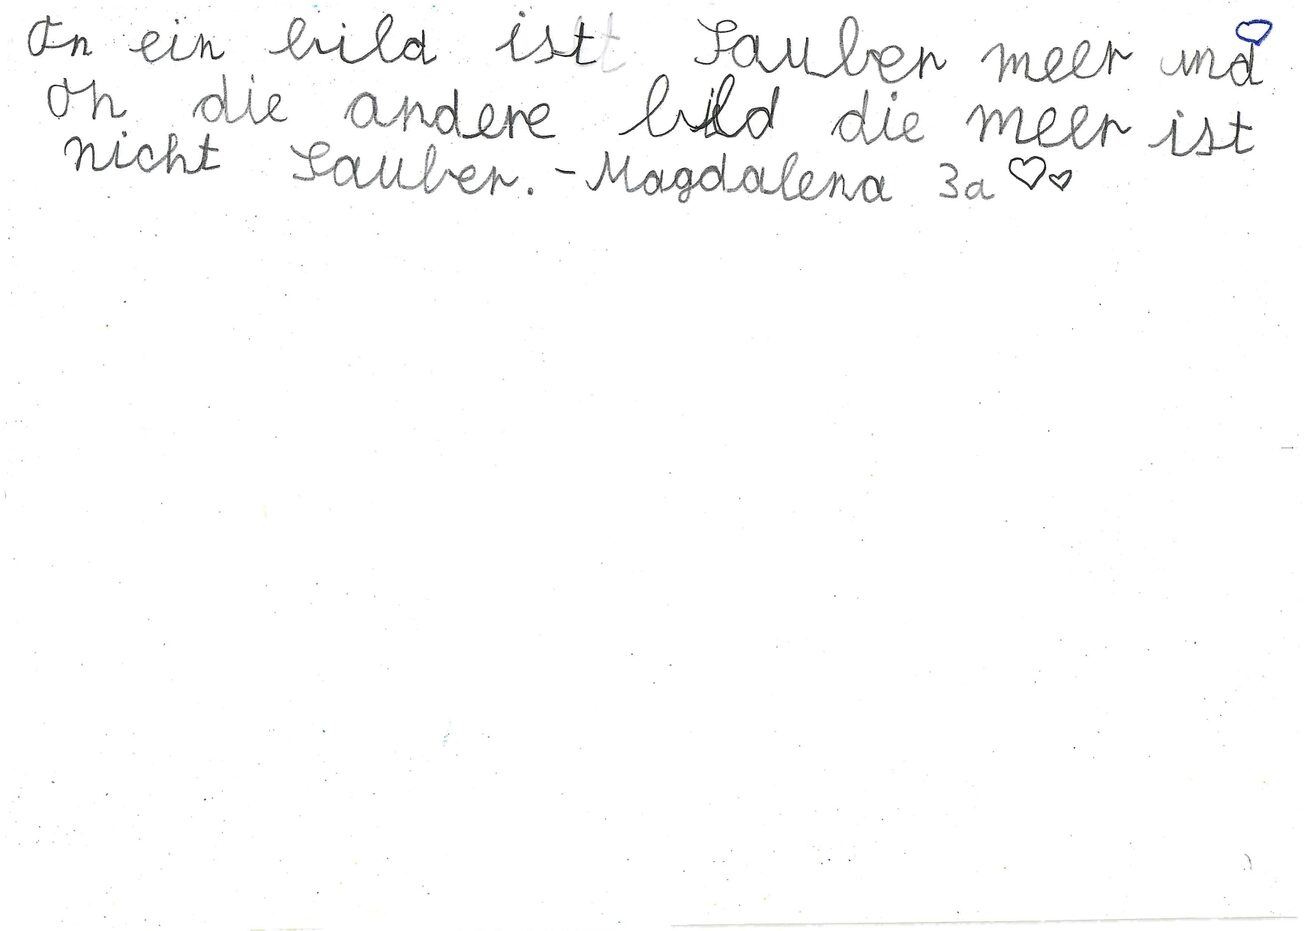 On ein bild ist Sauber meer und
On die andere bild die meer ist
nicht Sauber. - Magdalena 3a ♡♡